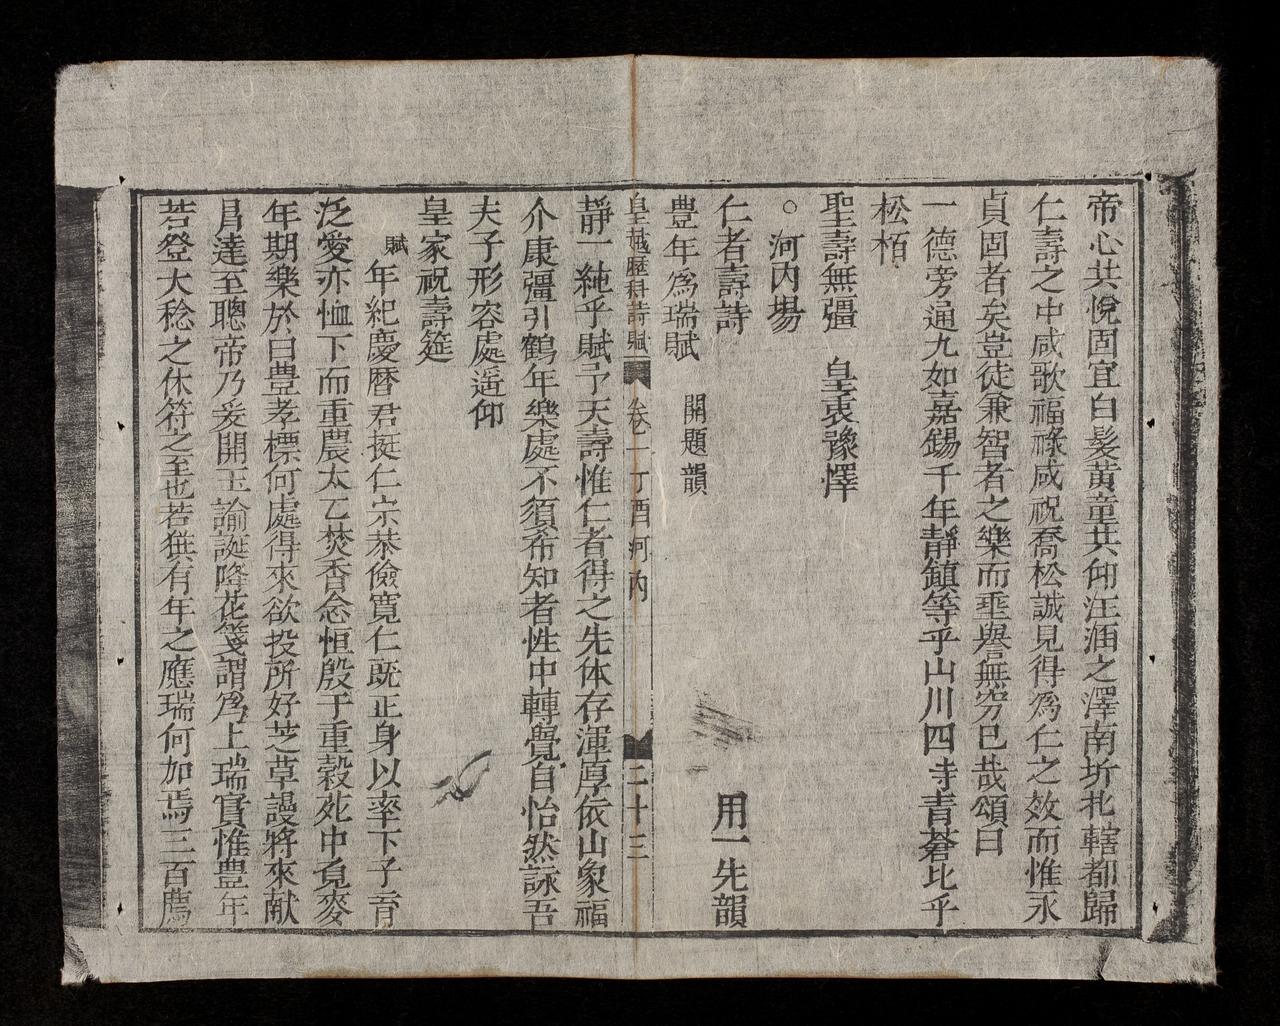 帝心共悅固宜白髮黃童共仰汪涵之澤南圻北轄都歸
仁壽之中咸歌福祿咸祝喬松誠見得為仁之效而惟永
貞固者矣豈徒兼智者之樂而垂譽無穷已哉頌曰
一德旁通九如嘉錫千年靜鎮等乎山川四寺青蒼比乎
松栢
聖壽無彊 皇衷豫懌
○河內場
仁者壽詩 用一先韻
豊年為瑞賦 開題韻
皇越歷科詩賦 卷二 丁酉河內 二十三
靜一純乎賦予天壽惟仁者得之先体存渾厚依山象福
介康彊引鶴年樂處不須希知者性中轉覺自怡然詠吾
夫子形容處遥仰
皇家祝壽筵
賦 年紀慶曆君挺仁宗恭儉寬仁既正身以率下子育
泛愛亦恤下而重農太乙焚香念恒殷于重穀苑中覔麥
年期樂於曰豊孝標何處得來欲投所好芝草謾將來献
昌達至聰帝乃爰開玉諭誕降花箋謂為上瑞實惟豊年
若登大稔之休符之至也若猉有年之應瑞何加焉三百薦